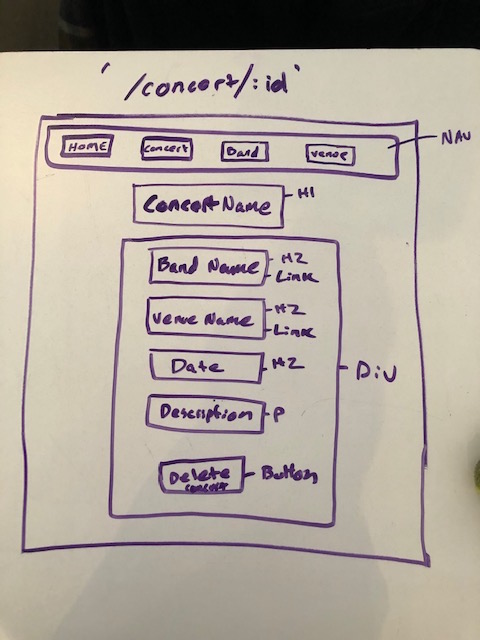 '/concert/:id'
HOME concert Band venue NAV
Concert Name H1
Band Name H2
Link
Venue Name H2
Link
Date H2
Div
Description P
Delete Button
concert